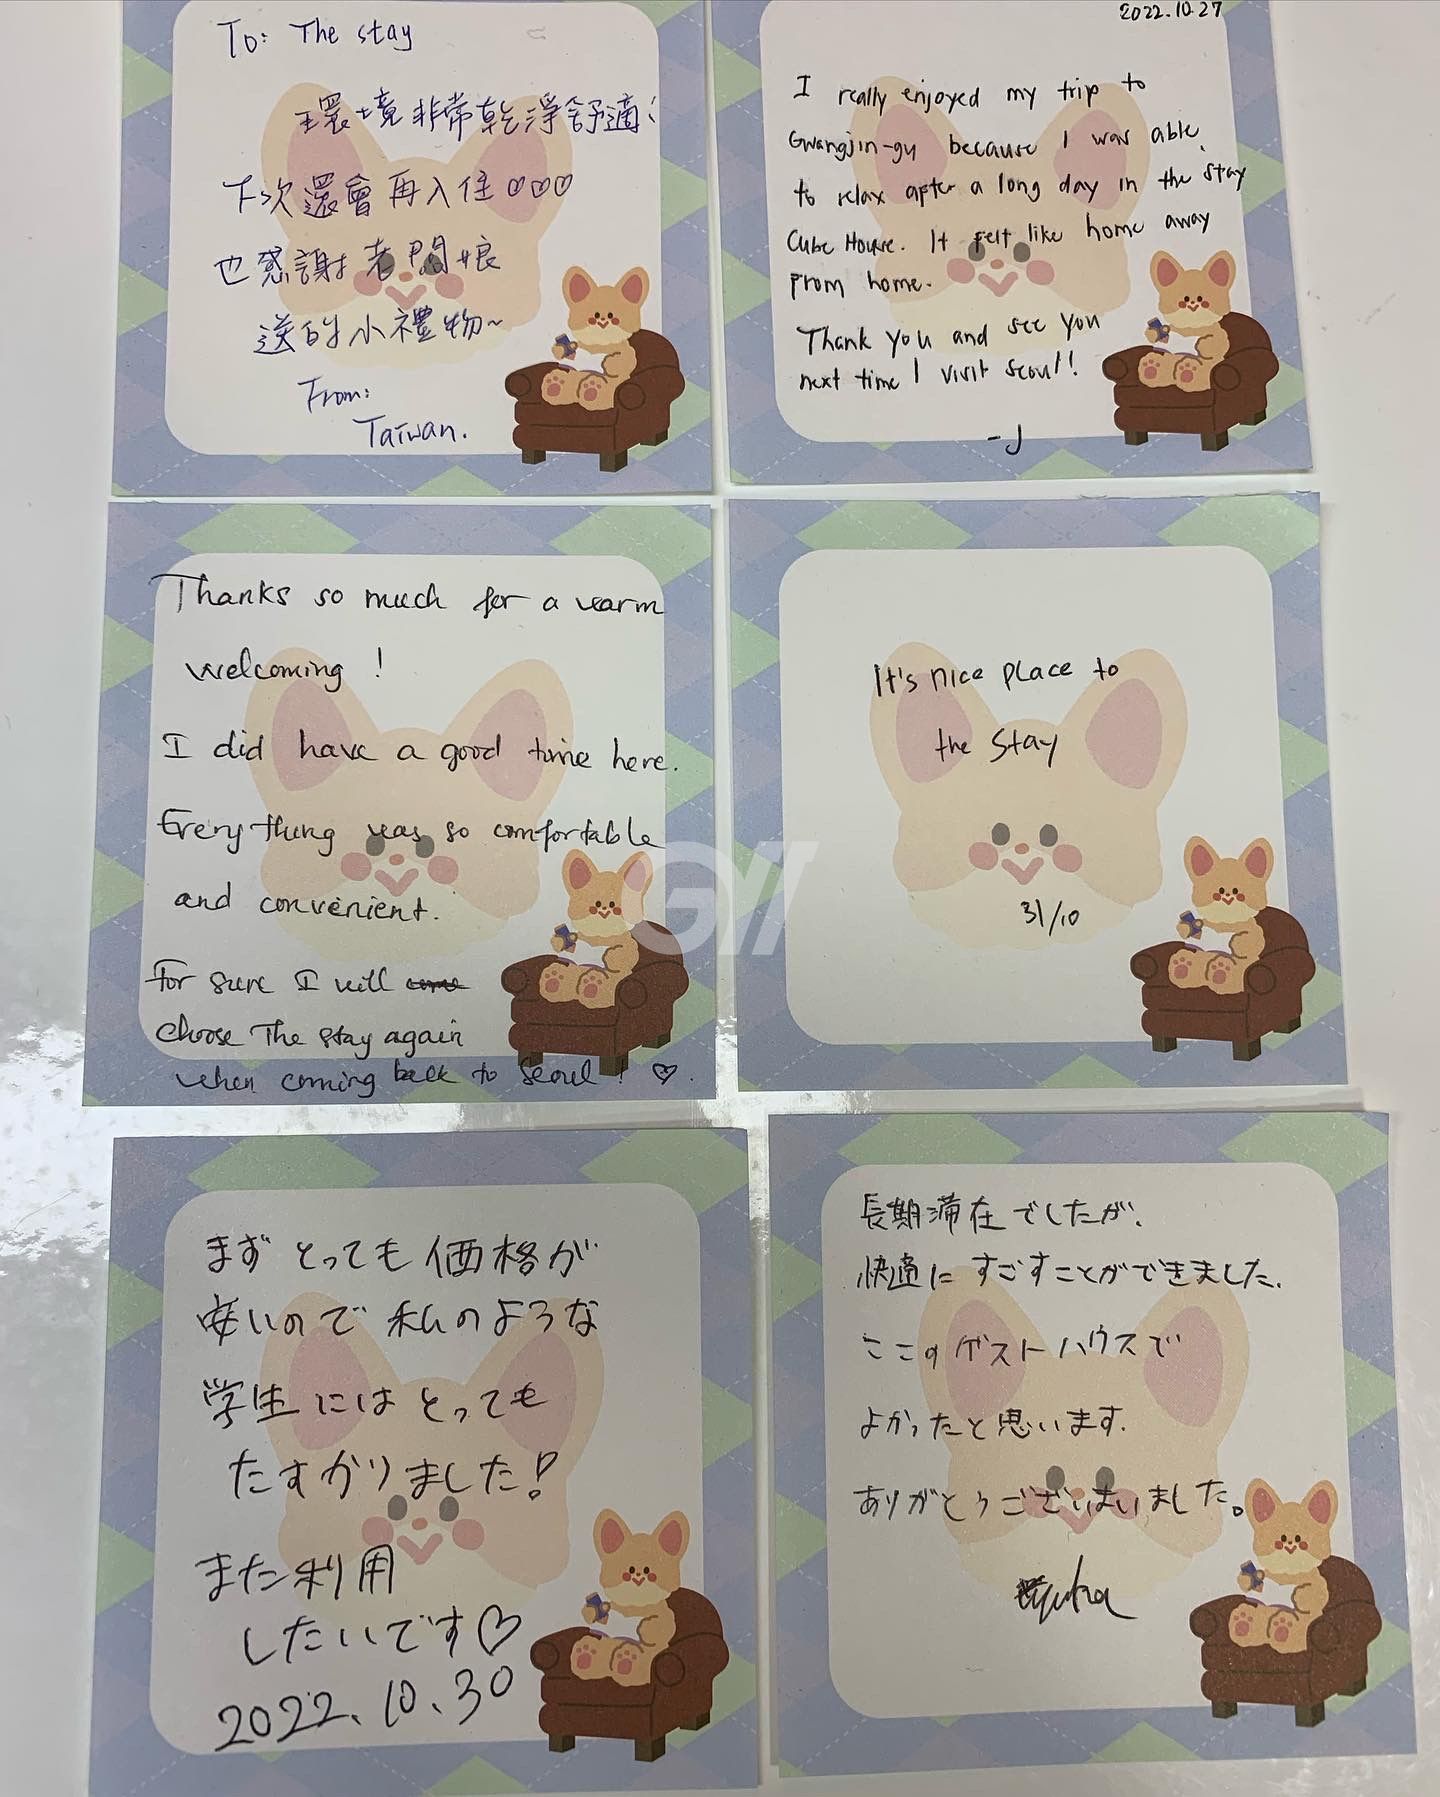 To: The stay
環境非常乾淨舒適!
下次還會再入住♡♡♡
也感謝老闆娘
送的小禮物~
From:
Taiwan.
2022.10.27
I really enjoyed my trip to
Gwangjin-gu because I was able
to relax after a long day in the stay
Cube House. It felt like home away
from home.
Thank you and see you
next time I visit Seoul!!
-J
Thanks so much for a warm
welcoming !
I did have a good time here.
Everything was so comfortable
and convenient.
For sure I will
choose The stay again
when coming back to Seoul ! ♡.
It's nice place to
the stay
31/10
まずとっても価格が
安いので私のような
学生にはとっても
たすかりました!
また利用
したいです♡
2022.10.30
長期滞在でしたが、
快適にすごすことができました。
ここのゲストハウスで
よかったと思います。
ありがとうございまいました。